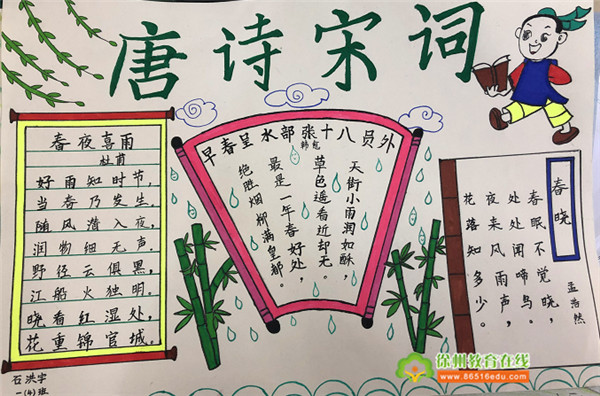 唐诗宋词
春夜喜雨
杜甫
好雨知时节，
当春乃发生。
随风潜入夜，
润物细无声。
野径云俱黑，
江船火独明。
晓看红湿处，
花重锦官城。
早春呈水部张十八员外
韩愈
天街小雨润如酥，
草色遥看近却无。
最是一年春好处，
绝胜烟柳满皇都。
春晓
孟浩然
春眠不觉晓，
处处闻啼鸟。
夜来风雨声，
花落知多少。
石洪宇
一(4)班
徐州教育在线
www.86516edu.com